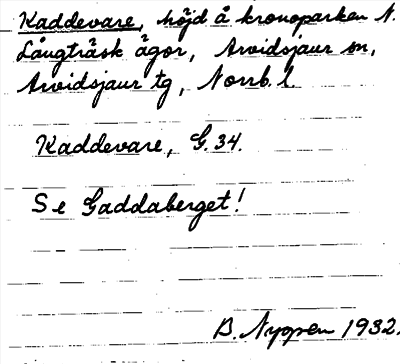 Kaddevare, höjd å kronoparken N.
Långträsk ägor, Arvidsjaur sn,
Arvidsjaur tg, Norrb. l.
Kaddevare, G. 34.
Se Gaddaberget!
B. Nygren 1932.